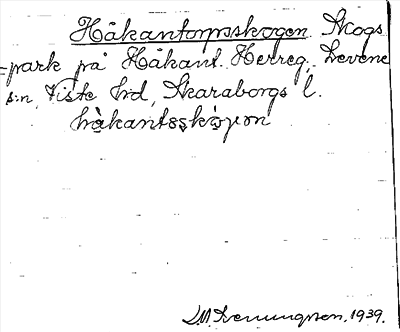 Håkantorpsskogen. Skogs
-park på Håkant. Herreg., Levene
s:n, Viste hrd, Skaraborgs l.
håkantsskogen
1939.